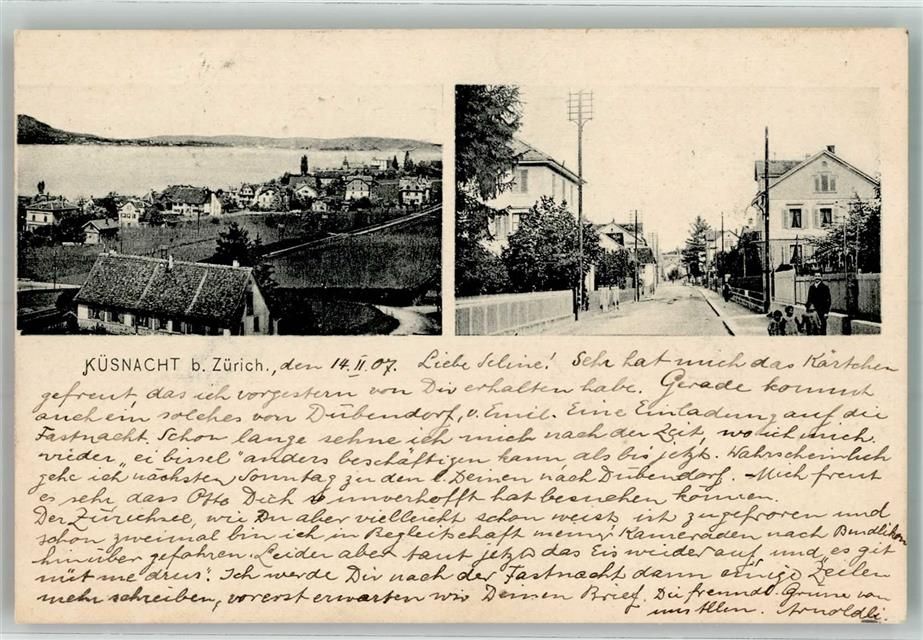 KÜSNACHT b. Zürich., den 14. II. 07. Liebe Seline! Sehr hat mich das Kärtchen
gefreut das ich vorgestern von Dir erhalten habe. Gerade kommt
auch ein solches von Dübendorf, v. Emil. Eine Einladung auf die
Fastnacht. Schon lange sehne ich mich nach der Zeit, wo ich mich
wieder „ei bissel" anders beschäftigen kann als bis jetzt. Wahrscheinlich
gehe ich nächsten Sonntag zu den l. Deinen nach Dübendorf. - Mich freut
es sehr dass Otto Dich so unverhofft hat besuchen können.
Der Zürichsee, wie Du aber vielleicht schon weist, ist zugefroren und
schon zweimal bin ich in Begleitschaft meiner Kameraden nach Bendlikon
hinüber gefahren. Leider aber taut jetzt das Eis wieder auf, und „es git
nüt me drus". Ich werde Dir nach der Fastnacht dann einige Zeilen
mehr schreiben, vorerst erwarten wir Deinen Brief. Die freundl. Grüsse von
uns Allen. Arnoldli.